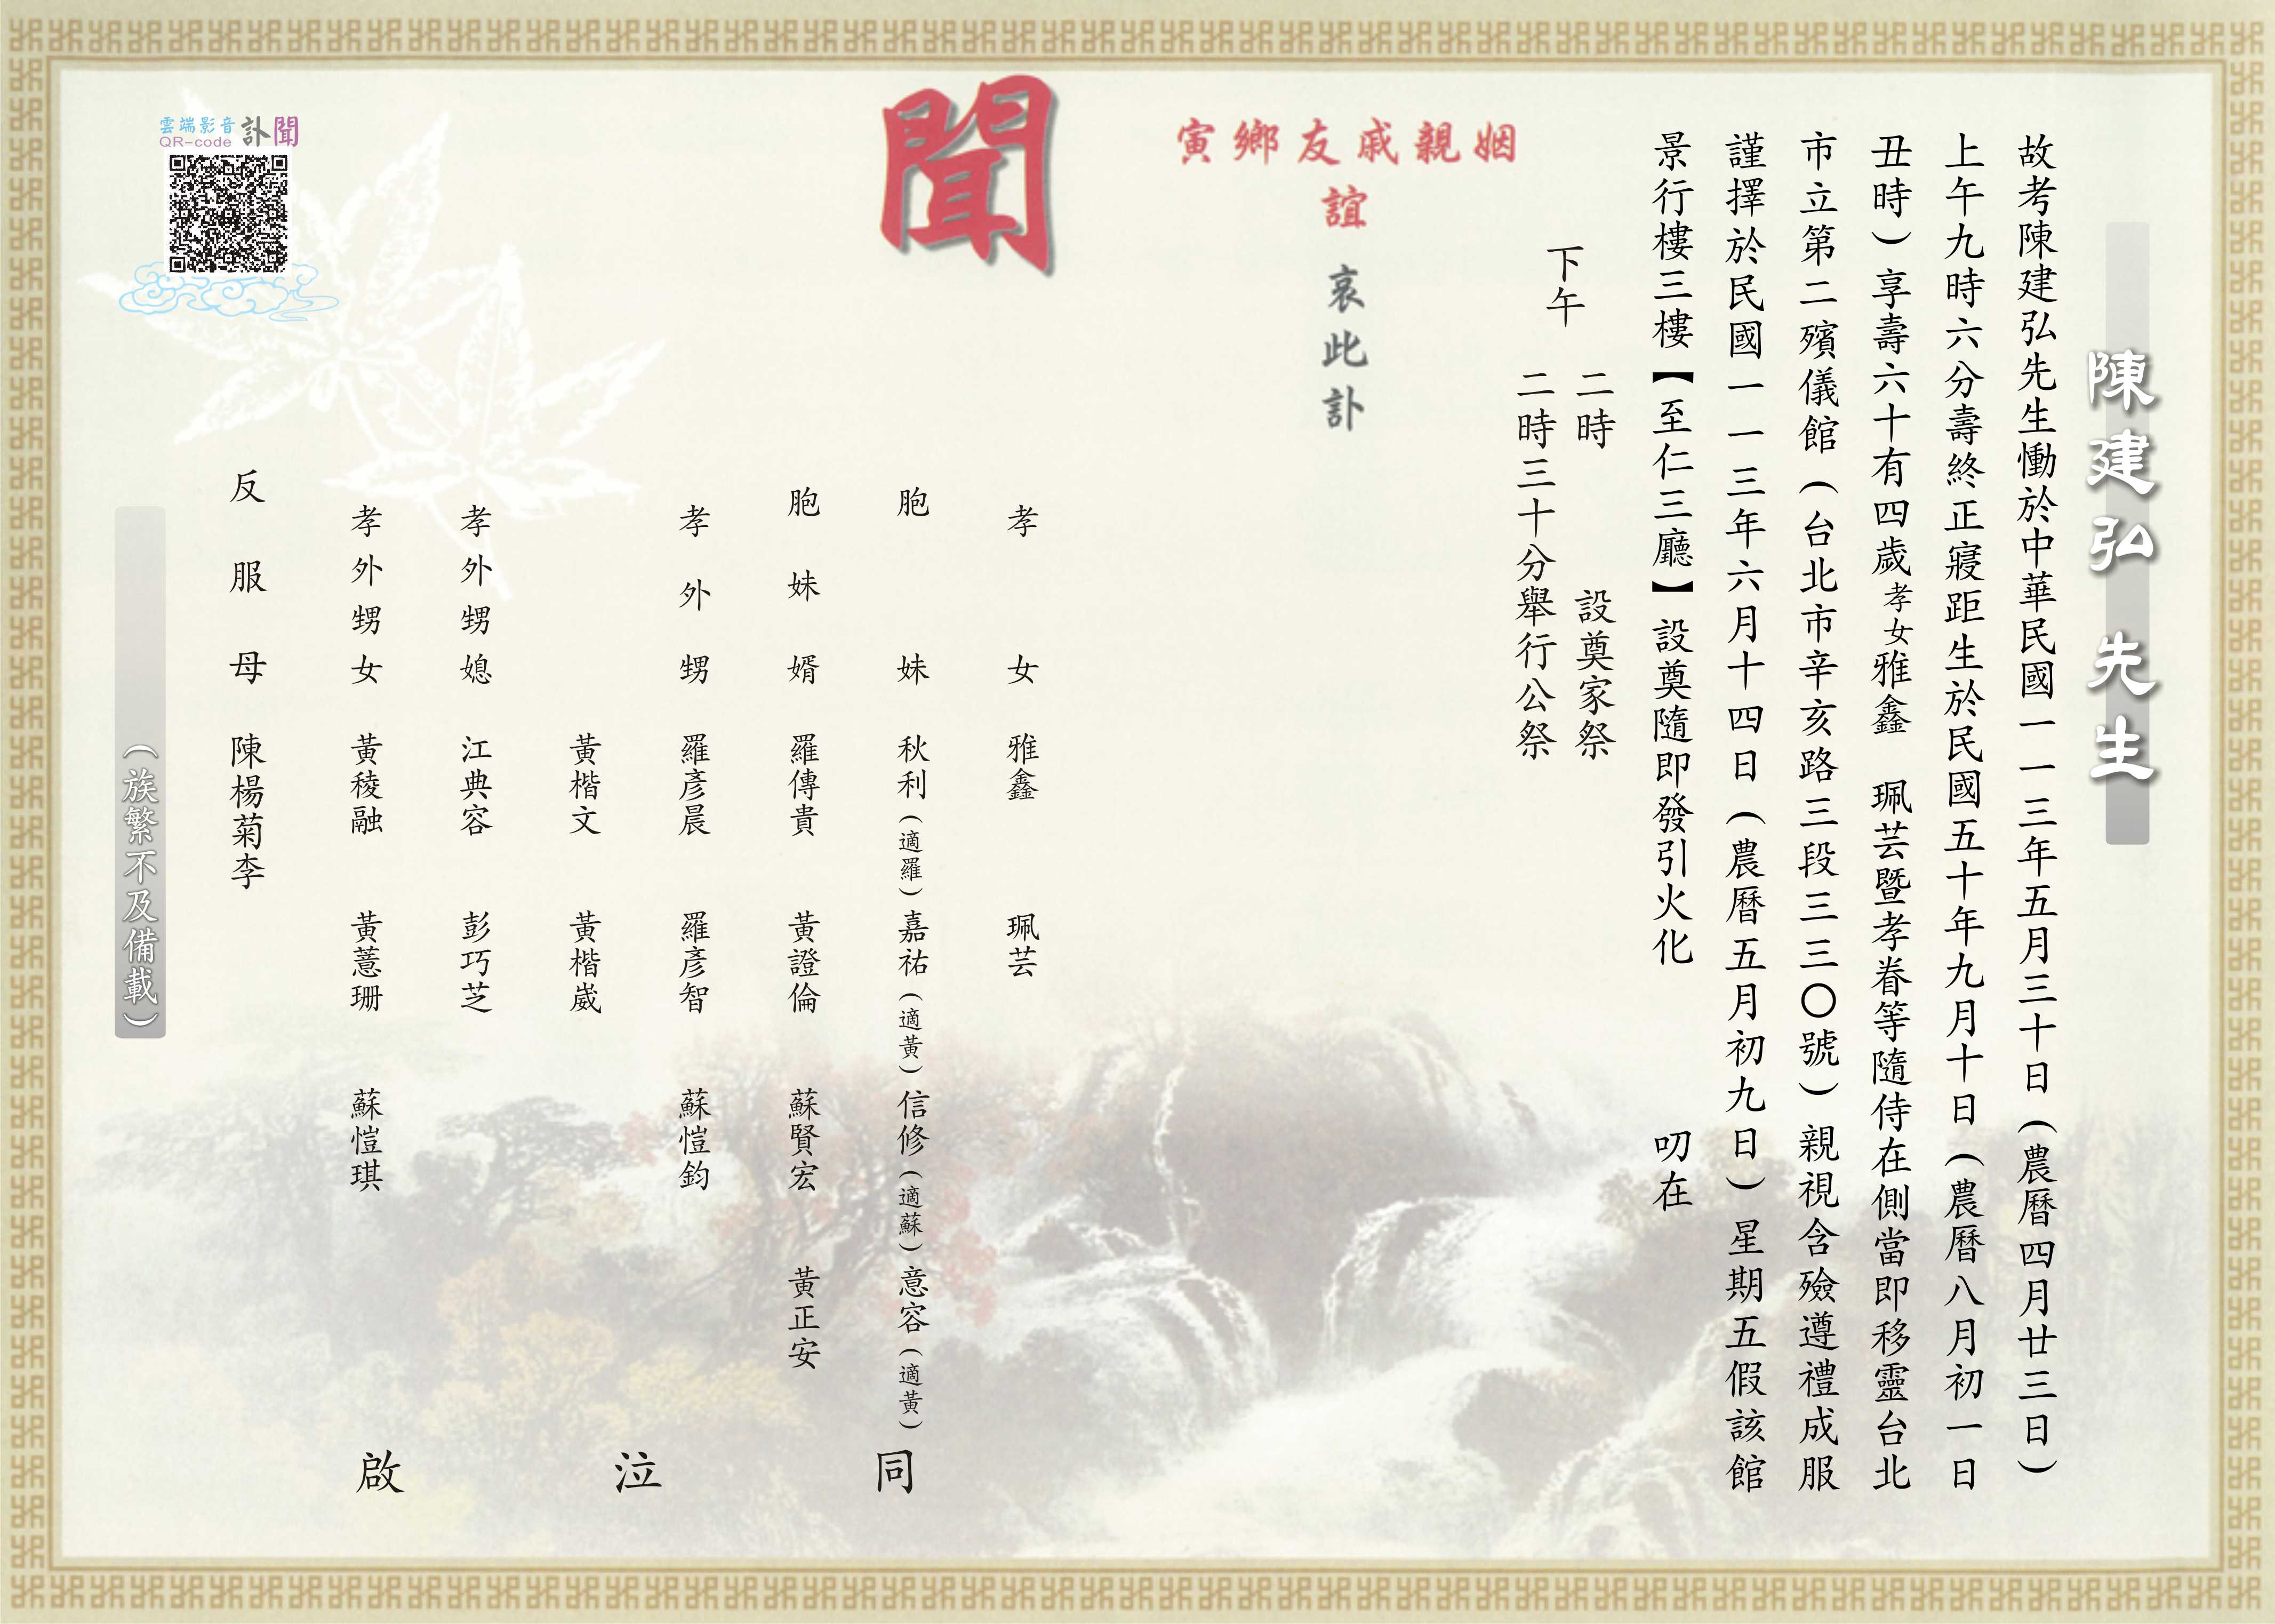 陳建弘 先生
故考陳建弘先生慟於中華民國一一三年五月三十日（農曆四月廿三日）
上午九時六分壽終正寢距生於民國五十年九月十日（農曆八月初一日
丑時）享壽六十有四歲孝女雅鑫 珮芸暨孝眷等隨侍在側當即移靈台北
市立第二殯儀館（台北市辛亥路三段三三〇號）親視含殮遵禮成服
謹擇於民國一一三年六月十四日（農曆五月初九日）星期五假該館
景行樓三樓【至仁三廳】設奠隨即發引火化 叨在
下午
二時 設奠家祭
二時三十分舉行公祭
姻親戚友鄉寅
誼 哀此訃
聞
孝女 雅鑫 珮芸
胞妹 秋利（適羅） 嘉祐（適黃） 信修（適蘇） 意容（適黃）
胞妹婿 羅傳貴 黃證倫 蘇賢宏 黃正安
孝外甥 羅彥晨 羅彥智 蘇愷鈞
黃楷文 黃楷崴
孝外甥媳 江典容 彭巧芝
孝外甥女 黃稜融 黃薏珊 蘇愷琪
反服母 陳楊菊李
同泣啟
（族繁不及備載）
雲端影音
QR-code
訃聞